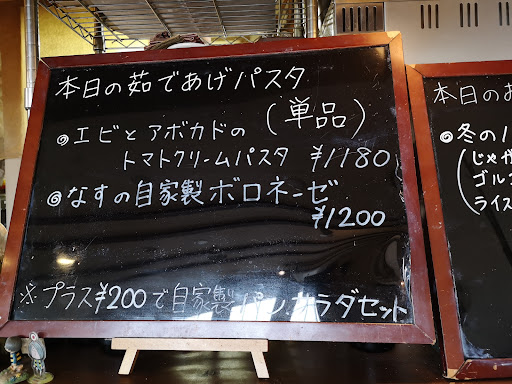 本日の茹であげパスタ
(単品)
◎エビとアボカドの
トマトクリームパスタ ¥1180
◎なすの自家製ボロネーゼ
¥1200
※プラス¥200で自家製パン、サラダセット
本日のお
◎冬の
(じゃが
ゴル
ライス